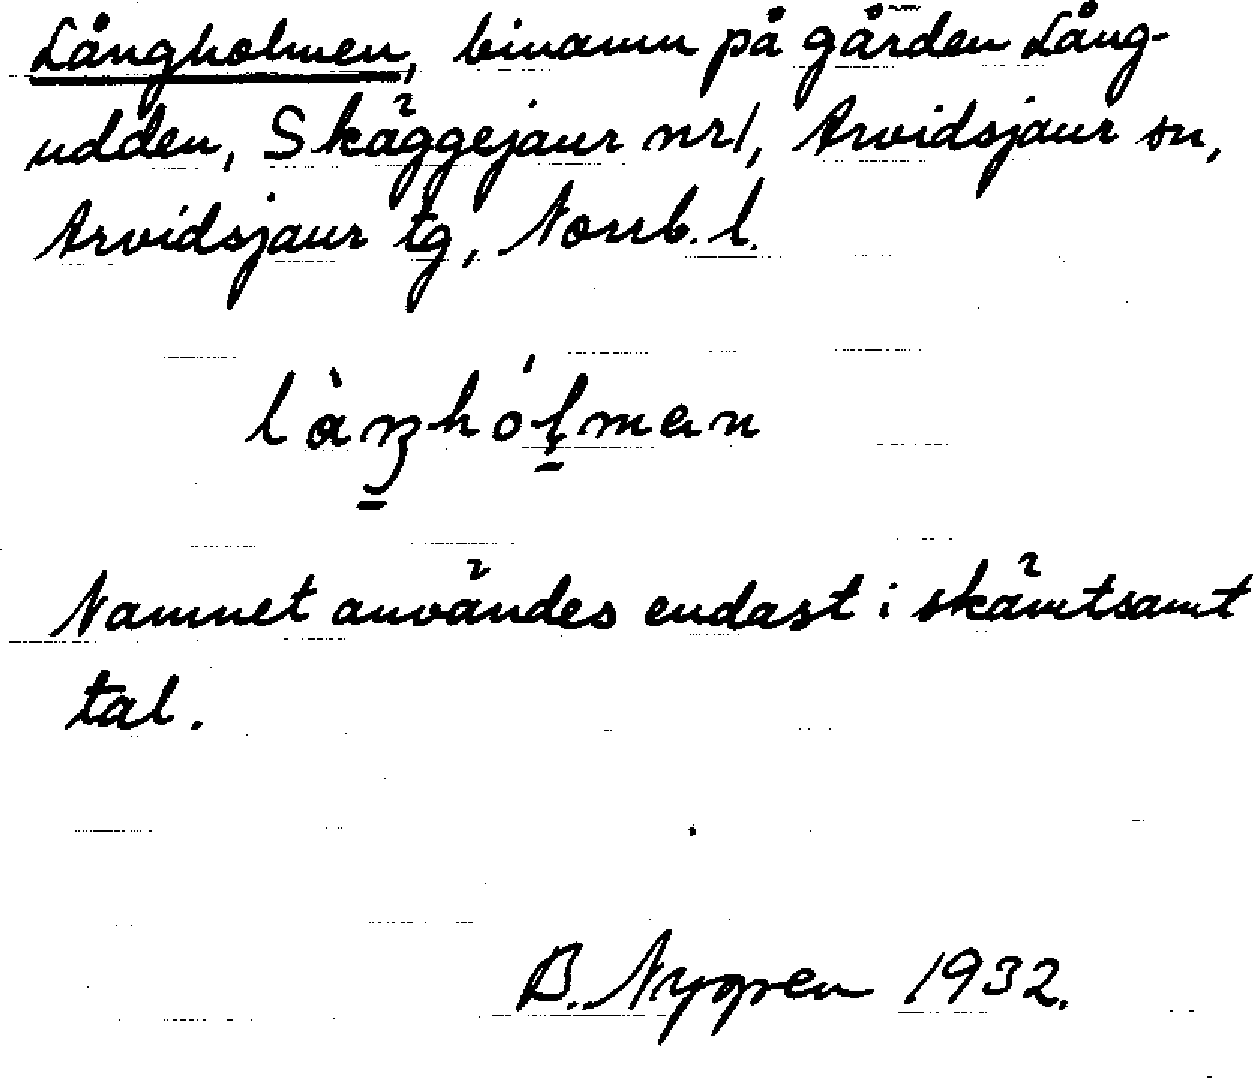 Långholmen, binamn på gården Lång-
udden, Skäggejaur nr 1, Arvidsjaur sn,
Arvidsjaur tg, Norrb. l.
làŋhól̥men
Namnet användes endast i skämtsamt
tal.
B. Nygren 1932.